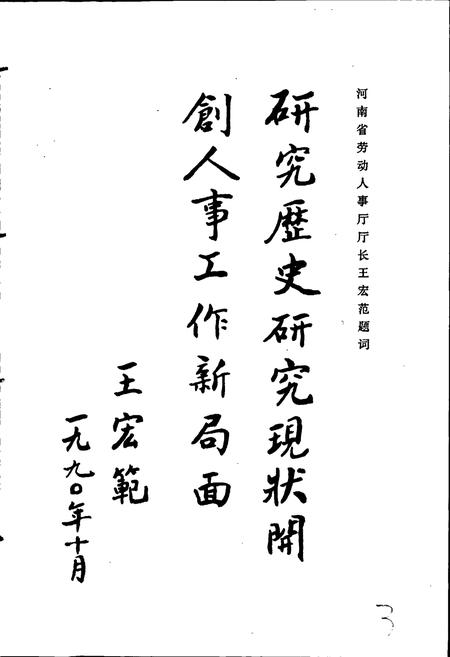 河南省劳动人事厅厅长王宏范题词
研究歷史研究現狀開
創人事工作新局面
王宏範
一九九〇年十月
3